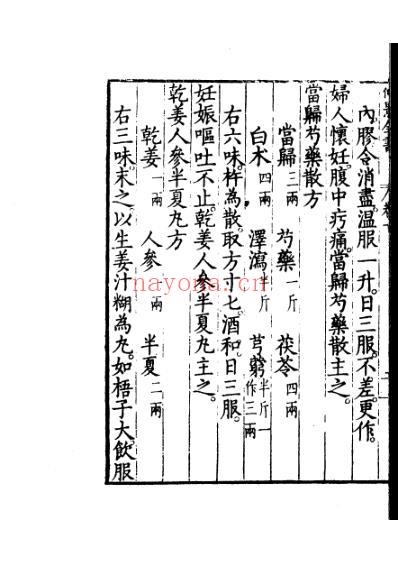 內膠令消盡。溫服一升。日三服。不差更作。
婦人懷妊。腹中㽲痛。當歸芍藥散主之。
當歸芍藥散方
當歸三兩 芍藥一斤 茯苓四兩
白木四兩 澤瀉半斤 芎藭半斤一作三兩
右六味。杵為散。取方寸匕。酒和。日三服。
妊娠嘔吐不止。乾姜人參半夏丸主之。
乾姜人參半夏丸方
乾姜一兩 人參一兩 半夏二兩
右三味。末之。以生姜汁糊為丸。如梧子大。飲服
nayona.cn